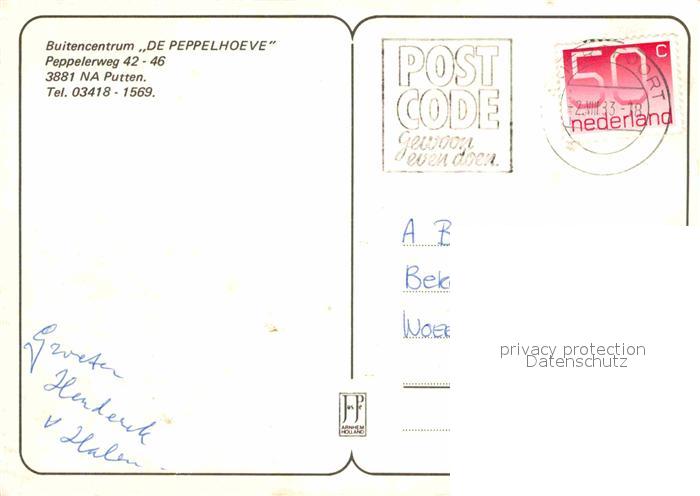 Buitencentrum „DE PEPPELHOEVE”
Peppelerweg 42 - 46
3881 NA Putten.
Tel. 03418 - 1569.
POST
CODE
gewoon
even doen.
50 c
nederland
A B
Bek
Woe
Groeten
Henderik
v Halen
JosPé
ARNHEM
HOLLAND
privacy protection
Datenschutz